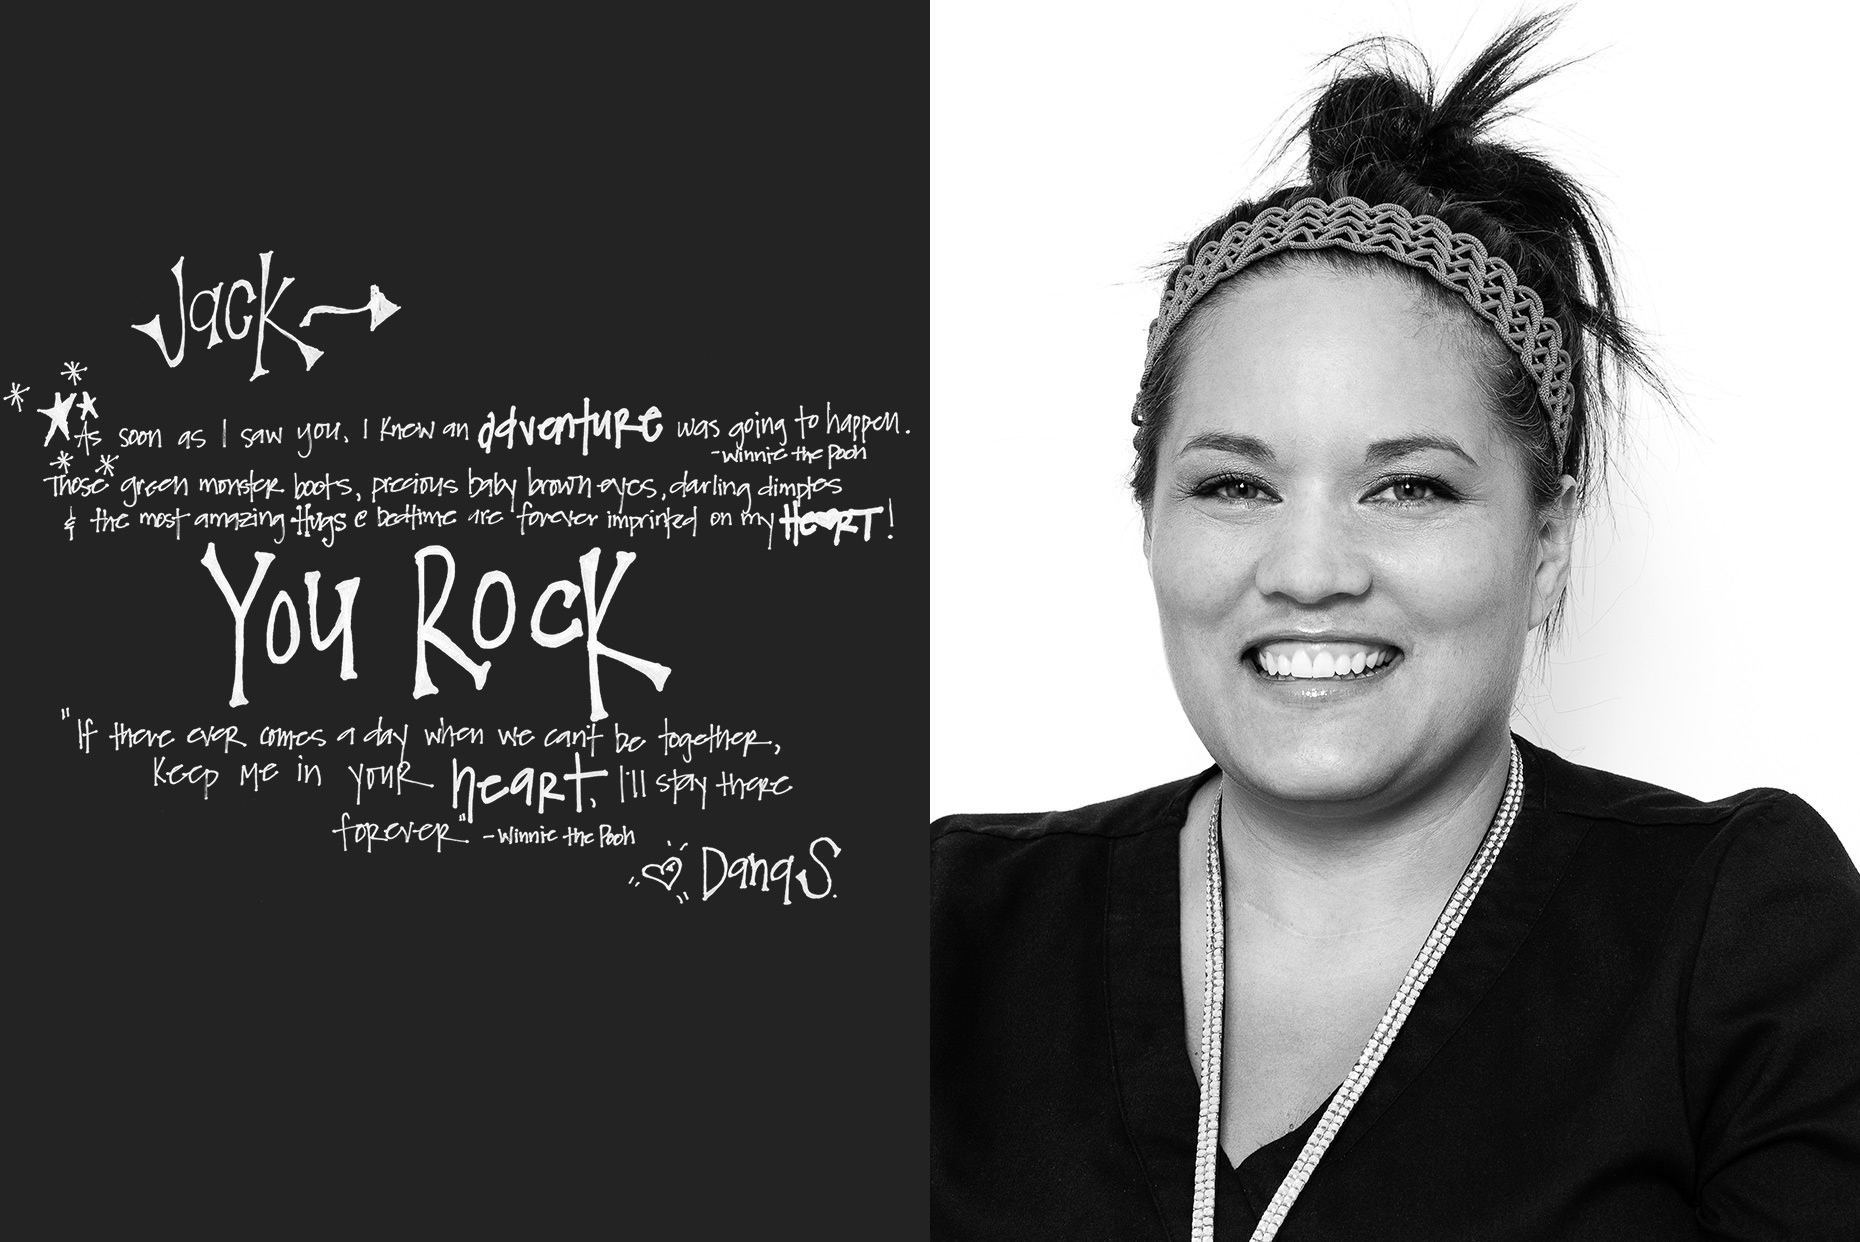 Jack
As soon as I saw you, I knew an adventure was going to happen.
-Winnie the Pooh
Those green monster boots, precious baby brown eyes, darling dimples
& the most amazing Hugs @ bedtime are forever imprinted on my HEART!
YOU ROCK
"If there ever comes a day when we can't be together,
Keep me in your heart, I'll stay there
forever" -Winnie the Pooh
Dana S.